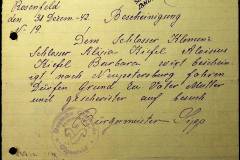 Rosenfeld
den 31 Dezem-42 Bescheinigung
№ 19.
Dem Schlosser Klemenz
Schlosser Alisia Kiefel Aloisius
Kiefel Barbara wirt bescheinigt nach
fahren
Dürfen Grund zu Vater Mutter
und geschwister auf besuch
Bürgermeister